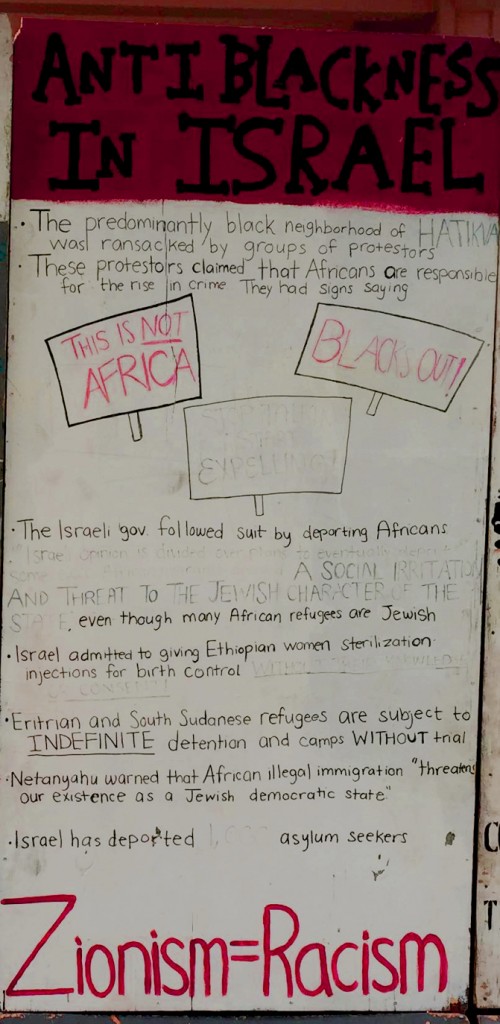 ANTI BLACKNESS
IN ISRAEL
· The predominantly black neighborhood of HATIKVA
was ransacked by groups of protestors
· These protestors claimed that Africans are responsible
for the rise in crime They had signs saying
THIS IS NOT
AFRICA
BLACKS OUT!
EXPELLING!
· The Israeli gov. followed suit by deporting Africans
"Israel opinion is divided over plans to eventually
some
A SOCIAL IRRITATION
AND THREAT TO THE JEWISH CHARACTER OF THE
STATE, even though many African refugees are Jewish
· Israel admitted to giving Ethiopian women sterilization
injections for birth control WITHOUT THEIR KNOWLEDGE
CONSENT!
· Eritrian and South Sudanese refugees are subject to
INDEFINITE detention and camps WITHOUT trial
· Netanyahu warned that African illegal immigration "threatens
our existence as a Jewish democratic state"
· Israel has deported asylum seekers
Zionism=Racism